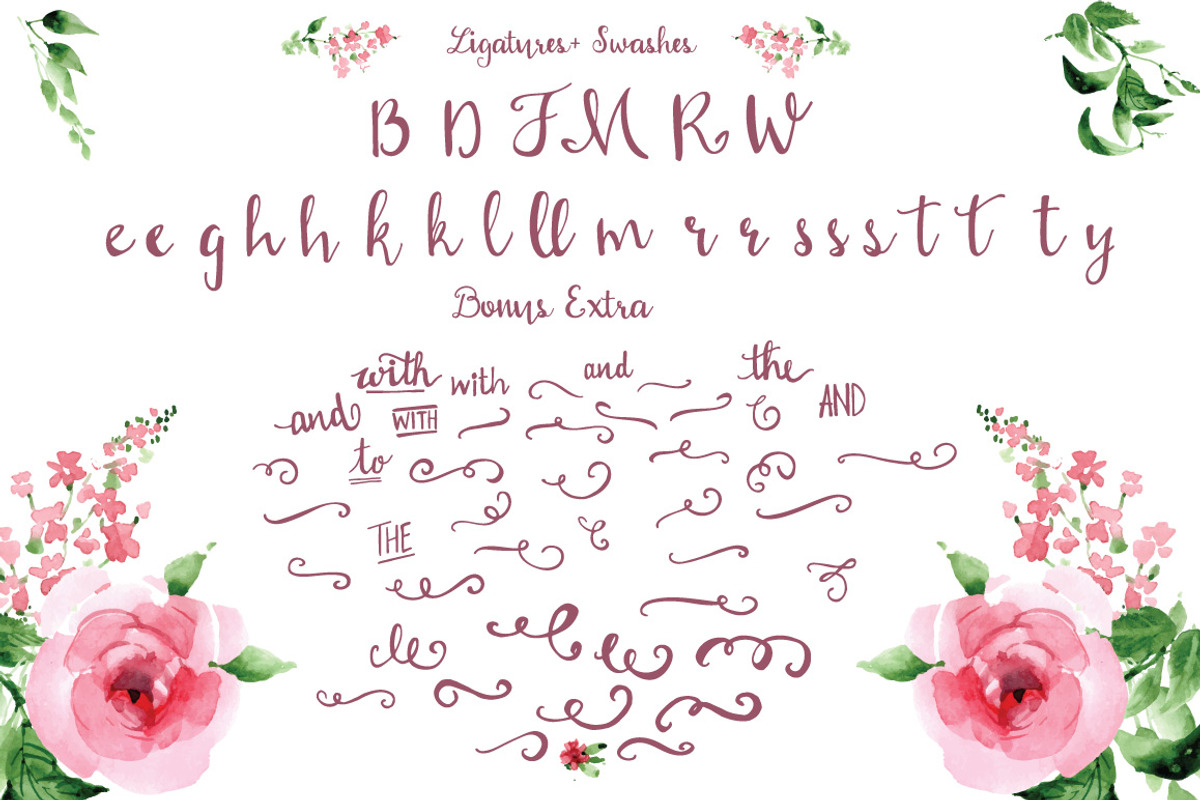 Ligatures+ Swashes
B D F M R W
e e g h h k k l ll m r r s s s t t t y
Bonus Extra
with with and the
and WITH AND
to
THE